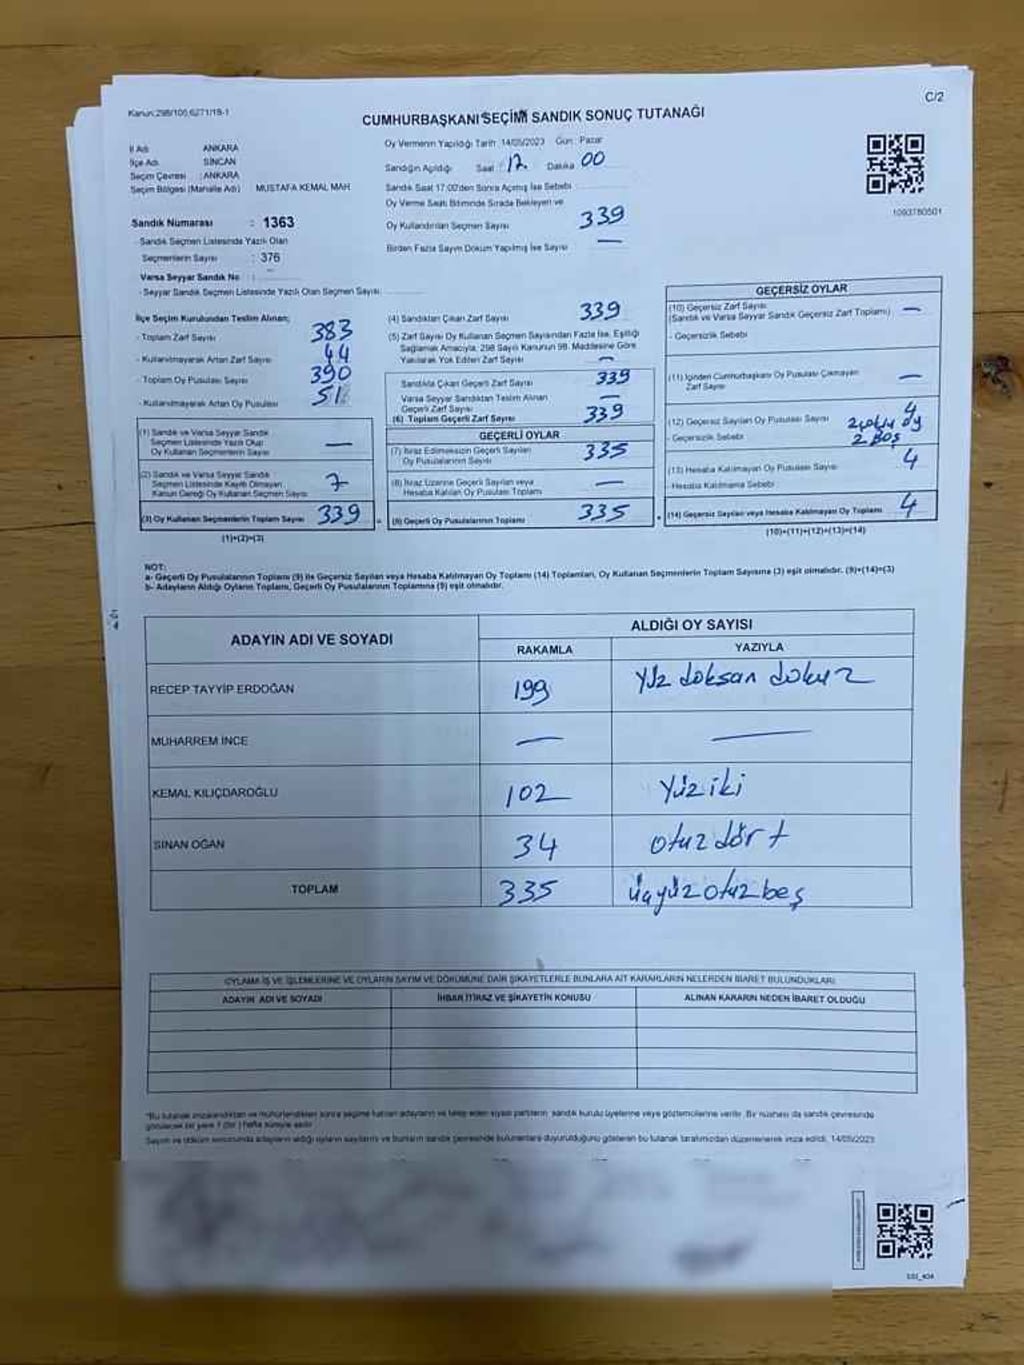 Kanun:298/105,6271/19-1
C/2
CUMHURBAŞKANI SEÇİMİ SANDIK SONUÇ TUTANAĞI
İl Adı ANKARA
İlçe Adı SİNCAN
Seçim Çevresi : ANKARA
Seçim Bölgesi (Mahalle Adı) MUSTAFA KEMAL MAH
Sandık Numarası : 1363
- Sandık Seçmen Listesinde Yazılı Olan
Seçmenlerin Sayısı : 376
Varsa Seyyar Sandık No :
- Seyyar Sandık Seçmen Listesinde Yazılı Olan Seçmen Sayısı:
Oy Vermenin Yapıldığı Tarih :14/05/2023 Gün : Pazar
Sandığın Açıldığı Saat : 17. Dakika 00
Sandık Saat 17:00'den Sonra Açılmış İse Sebebi
Oy Verme Saati Bitiminde Sırada Bekleyen ve
Oy Kullandırılan Seçmen Sayısı 339
Birden Fazla Sayım Döküm Yapılmış İse Sayısı —
1093780501
İlçe Seçim Kurulundan Teslim Alınan;
- Toplam Zarf Sayısı 383
- Kullanılmayarak Artan Zarf Sayısı 44
- Toplam Oy Pusulası Sayısı 390
- Kullanılmayarak Artan Oy Pusulası 51
(1) Sandık ve Varsa Seyyar Sandık
Seçmen Listesinde Yazılı Olup
Oy Kullanan Seçmen Sayısı —
(2) Sandık ve Varsa Seyyar Sandık
Seçmen Listesinde Kayıtlı Olmayan
Kanun Gereği Oy Kullanan Seçmen Sayısı 7
(3) Oy Kullanan Seçmenlerin Toplam Sayısı 339
(1)+(2)=(3)
(4) Sandıktan Çıkan Zarf Sayısı 339
(5) Zarf Sayısı Oy Kullanan Seçmen Sayısından Fazla İse, Eşitliği
Sağlamak Amacıyla, 298 Sayılı Kanunun 98. Maddesine Göre
Yakılarak Yok Edilen Zarf Sayısı —
Sandıkta Çıkan Geçerli Zarf Sayısı 339
Varsa Seyyar Sandıktan Teslim Alınan
Geçerli Zarf Sayısı —
(6) Toplam Geçerli Zarf Sayısı 339
GEÇERLİ OYLAR
(7) İtiraz Edilmeksizin Geçerli Sayılan
Oy Pusulalarının Sayısı 335
(8) İtiraz Üzerine Geçerli Sayılan veya
Hesaba Katılan Oy Pusulası Toplamı —
(9) Geçerli Oy Pusulalarının Toplamı 335
GEÇERSİZ OYLAR
(10) Geçersiz Zarf Sayısı
(Sandık ve Varsa Seyyar Sandık Geçersiz Zarf Toplamı) —
- Geçersizlik Sebebi
(11) İçinden Cumhurbaşkanı Oy Pusulası Çıkmayan
Zarf Sayısı —
(12) Geçersiz Sayılan Oy Pusulası Sayısı 4
- Geçersizlik Sebebi 2 BOŞ
(13) Hesaba Katılmayan Oy Pusulası Sayısı 4
- Hesaba Katılmama Sebebi
(14) Geçersiz Sayılan veya Hesaba Katılmayan Oy Toplamı 4
(10)+(11)+(12)+(13)=(14)
NOT:
a- Geçerli Oy Pusulalarının Toplamı (9) ile Geçersiz Sayılan veya Hesaba Katılmayan Oy Toplamı (14) Toplamları, Oy Kullanan Seçmenlerin Toplam Sayısına (3) eşit olmalıdır. (9)+(14)=(3)
b- Adayların Aldığı Oyların Toplamı, Geçerli Oy Pusulalarının Toplamına (9) eşit olmalıdır.
ADAYIN ADI VE SOYADI ALDIĞI OY SAYISI
RAKAMLA YAZIYLA
RECEP TAYYİP ERDOĞAN 199 Yüz doksan dokuz
MUHARREM İNCE — —
KEMAL KILIÇDAROĞLU 102 Yüz iki
SİNAN OĞAN 34 otuz dört
TOPLAM 335 üçyüz otuz beş
OYLAMA İŞ VE İŞLEMLERİNE VE OYLARIN SAYIM VE DÖKÜMÜNE DAİR ŞİKAYETLERLE BUNLARA AİT KARARLARIN NELERDEN İBARET BULUNDUKLARI
ADAYIN ADI VE SOYADI İHBAR İTİRAZ VE ŞİKAYETİN KONUSU ALINAN KARARIN NEDEN İBARET OLDUĞU
*Bu tutanak imzalandıktan ve mühürlendikten sonra seçime katılan adayların ve talep eden siyasi partilerin sandık kurulu üyelerine veya gözlemcilerine verilir. Bir nüshası da sandık çevresinde
görülecek bir yere 1 (bir) hafta süreyle asılır.
Sayım ve döküm sonucunda adayların aldığı oyların sayılarını ve bunların sandık çevresinde bulunanlara duyurulduğunu gösteren bu tutanak tarafımızdan düzenlenerek imza edildi. 14/05/2023